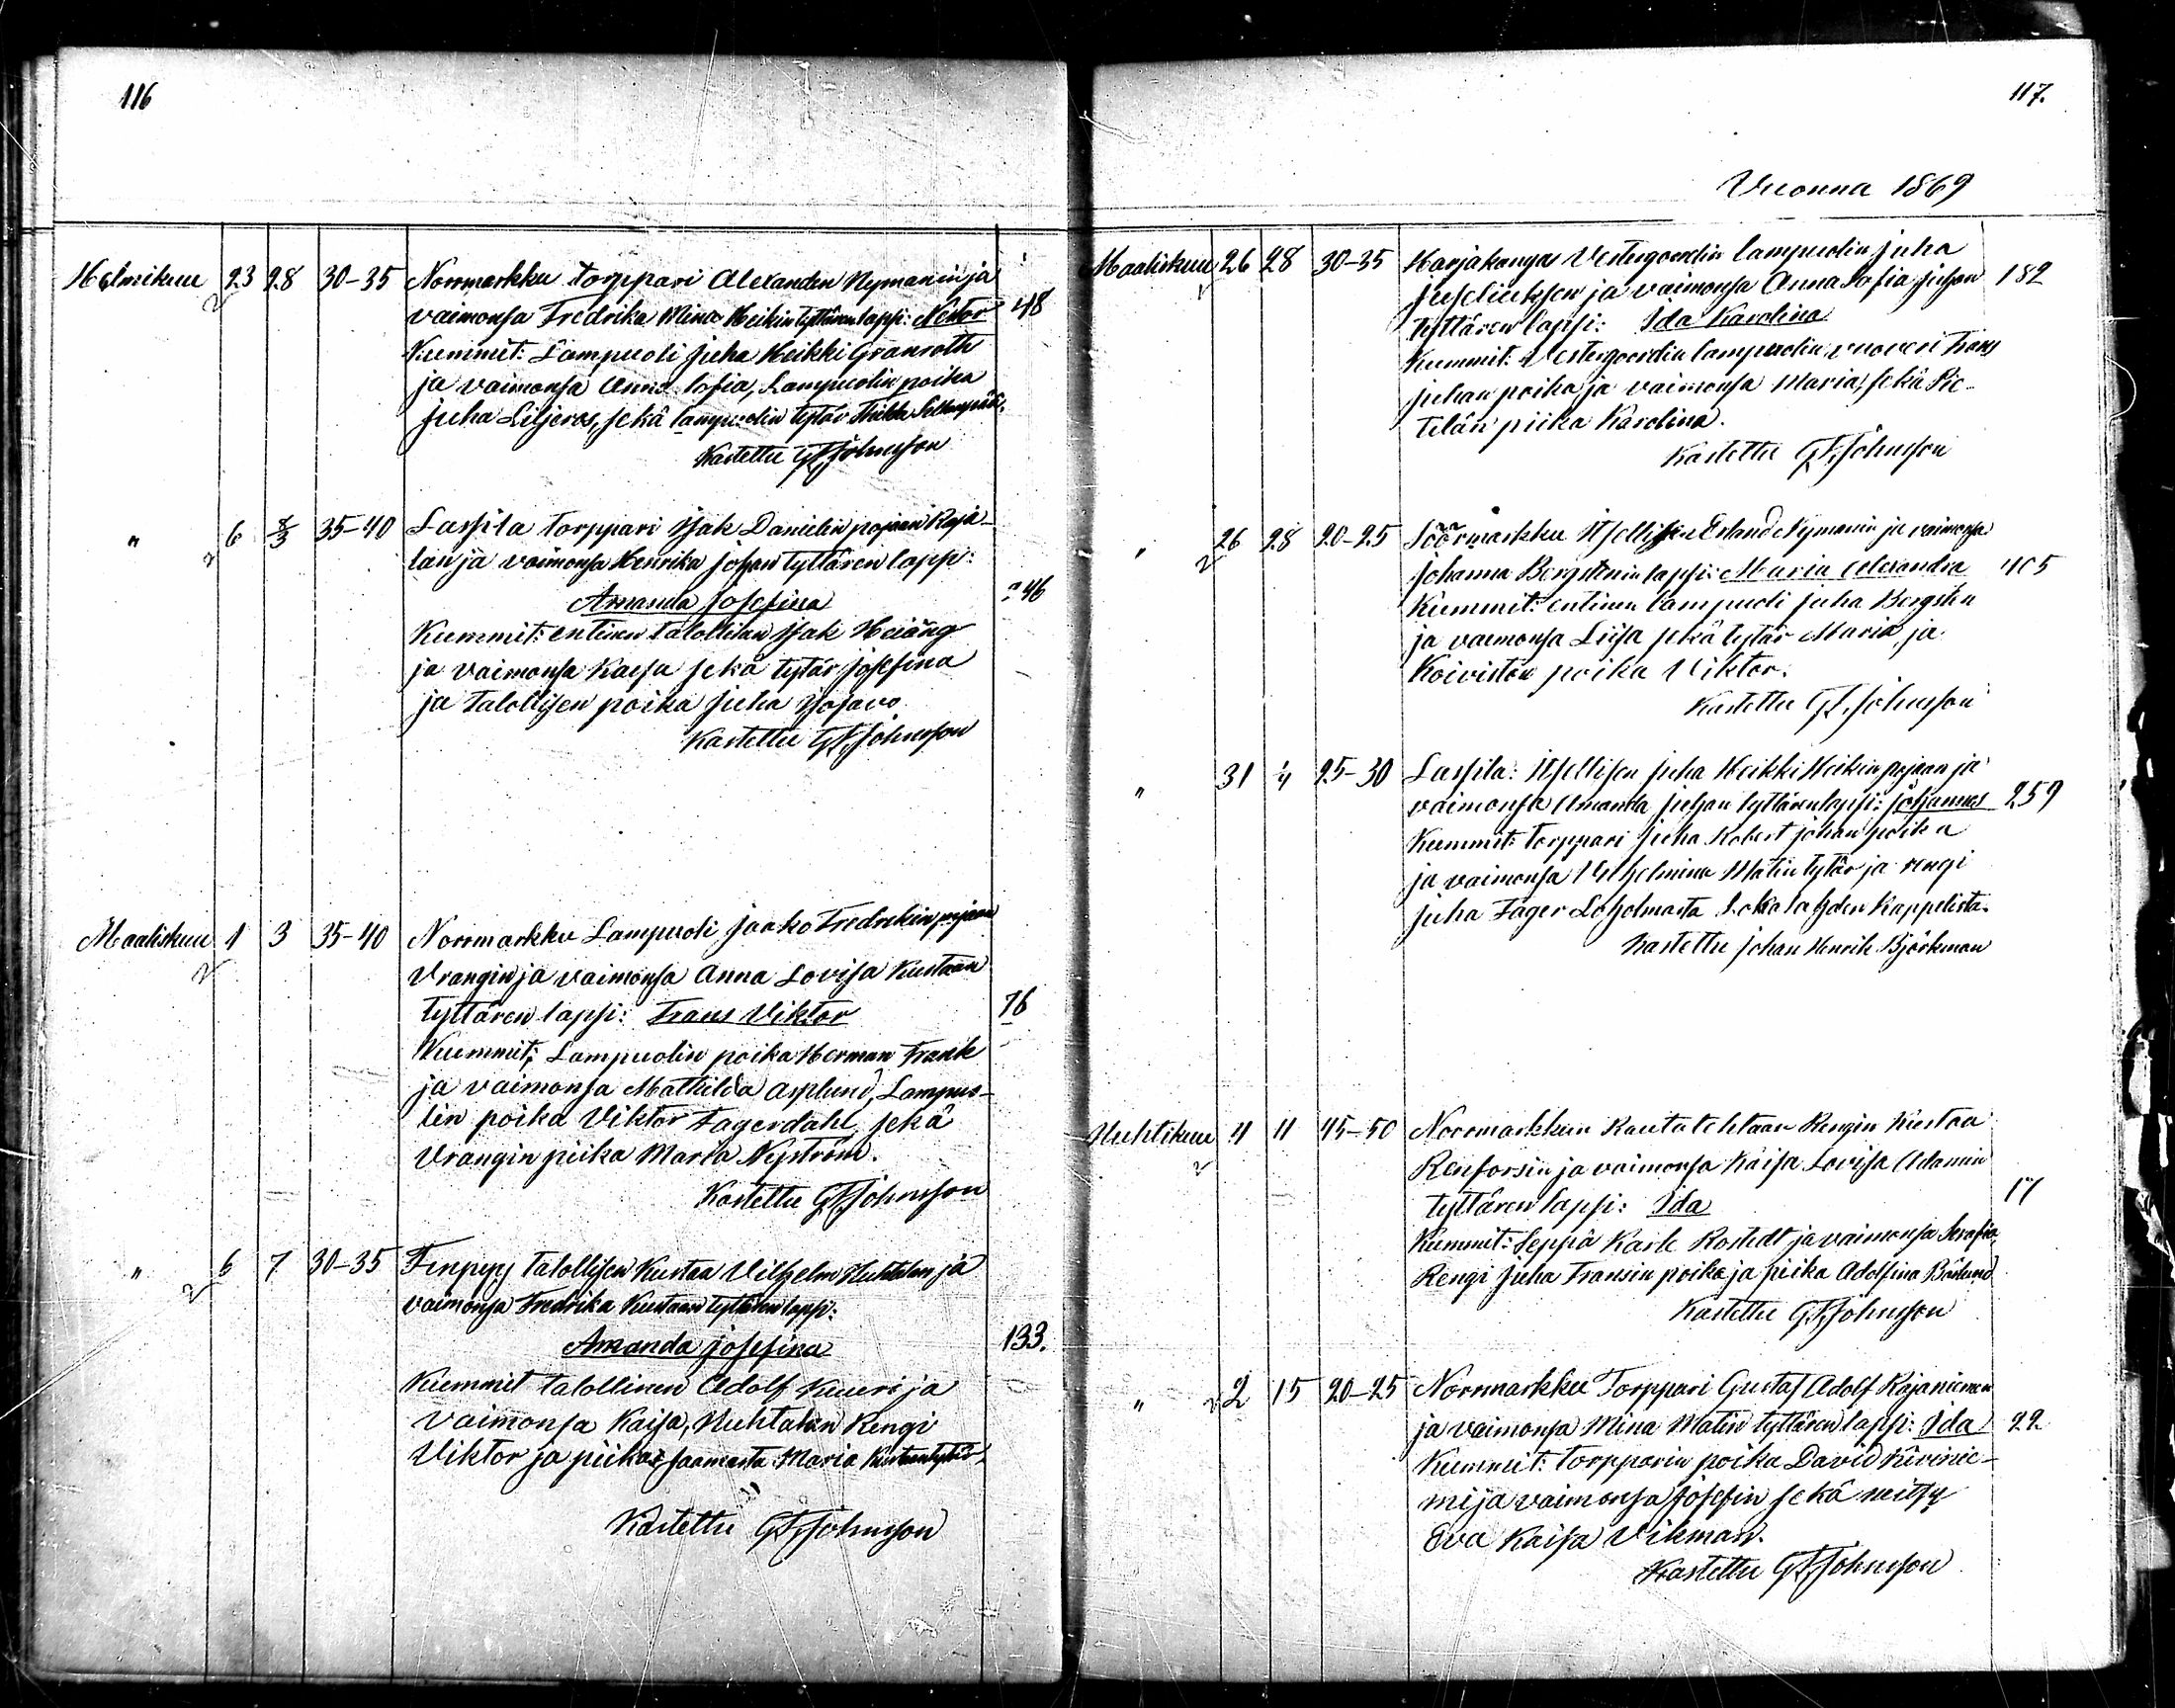 116
Helmikuu 23 28 30-35 Norrmarkku torppari Alexander Nymanin ja
vaimonsa Fredrika Mina Heikin tyttären lapsi: Nestor 48
Kummit: Lampuoli Juha Heikki Granroth
ja vaimonsa Anna Sofia, Lampuolin poika
Juha Liljeros, sekä lampuolin tytär
Kastettu G F Johnsson
" 6 8/3 35-40 Lassila torppari Isak Danielin pojan Raja-
lan ja vaimonsa Henrika Johan tyttären laps:
Amanda Josefina 46
Kummit: entinen talollinen Isak
ja vaimonsa Kaisa sekä tytär Josefina
ja talollisen poika Juha
Kastettu G F Johnsson
Maaliskuu 1 3 35-40 Norrmarkku Lampuoli Jaako Fredrikin pojan
Vrangin ja vaimonsa Anna Lovisa Kustaan
tyttären lapsi: Frans Viktor 76
Kummit; Lampuolin poika Herman Frank
ja vaimonsa Mathilda Asplund, Lampuo-
lin poika Viktor Fagerdahl, sekä
Vrangin piika Maria Nyström.
Kastettu G F Johnsson
" 6 7 30-35 Finpyy talollisen Kustaa Vilhelm Huhtalan ja
vaimonsa Fredrika Kustaan tyttären laps:
Amanda Josefina 133.
Kummit talollinen Adolf Kuuri ja
vaimonsa Kaisa, Huhtalan Rengi
Viktor ja piika Maria Kustaantytär.
Kastettu G F Johnsson
117.
Vuonna 1869
Maaliskuu 26 28 30-35 Harjakanga Vestergoordin lampuolin Juha
Juseliuksen ja vaimonsa Anna Sofia Juhan 182
tyttären lapsi: Ida Karolina
Kummit: Vestergoordin lampuolin vuoveri Frans
Juhan poika ja vaimonsa Maria, sekä Pie-
tilän piika Karolina.
Kastettu G F Johnsson
" 26 28 20-25 Söörmarkku Itsellisen Erland Nymanin ja vaimonsa
Johanna Bergstenin lapsi: Maria Alexandra 405
Kummit: entinen lampuoli Juha Bergsten
ja vaimonsa Liisa sekä tytär Maria, ja
Koiviston poika Viktor.
Kastettu G F Johnsson
" 31 1/4 25-30 Lassila: Itsellisen Juha Heikki Heikin pojan ja
vaimonsa Amanda Juhan tyttären lapsi: Johannes 259
Kummit: torppari Juha Robert Johan poika
ja vaimonsa Vilhelmina Matin tytär ja rengi
Juha Fager Lokalahden Kappelista.
Kastettu Johan Henrik Björkman
Huhtikuu 4 11 45-50 Norrmarkkun Rautatehtaan Rengin Kustaa
Renforsin ja vaimonsa Kaisa Lovisa Adamin
tyttären lapsi: Ida 17
Kummit: Seppä Karle Rostedt ja vaimonsa Serafia,
Rengi Juha Fransin poika ja piika Adolfina Bärlund
Kastettu G F Johnsson
" 2 15 20-25 Norrmarkku Torppari Gustaf Adolf Rajaniemen
ja vaimonsa Mina Matin tyttären lapsi: Ida 22
Kummit: torpparin poika David Kivinie-
mi ja vaimonsa Josefin sekä neitsy
Eva Kaisa Vikman.
Kastettu G F Johnsson